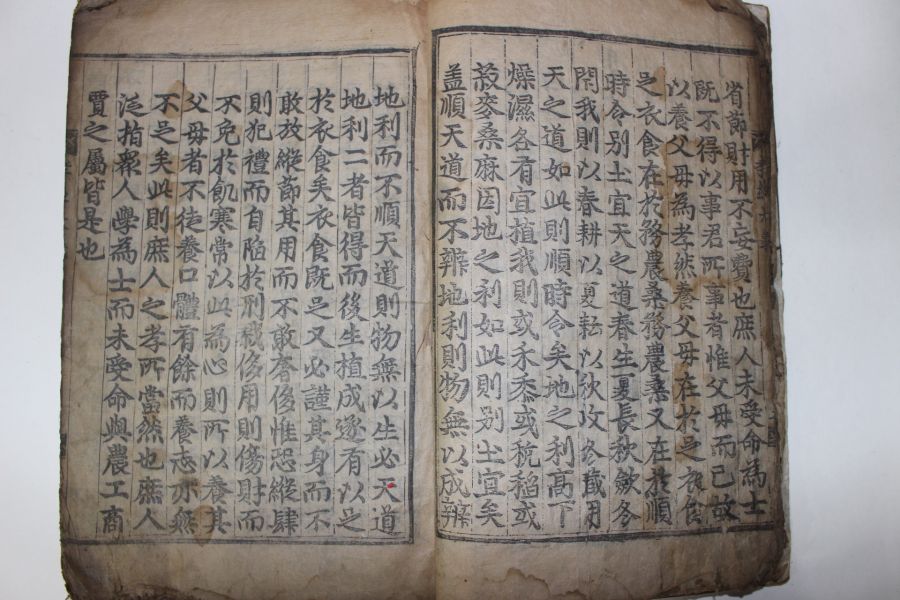 省節財用不妄費也庶人未受命爲士
既不得以事君所事者惟父母而已故
以養父母爲孝然養父母在於足衣食
足衣食在於務農桑務農桑又在於順
時令別土宜天之道春生夏長秋斂冬
閉我則以春耕以夏耘以秋收冬藏用
天之道如此則順時令矣地之利高下
燥濕各有宜植我則或禾黍或秔稻或
菽麥桑麻因地之利如此則別土宜矣
盖順天道而不辨地利則物無以成辨
地利而不順天道則物無以生必天道
地利二者皆得而後生植成遂有以足
於衣食矣衣食既足又必謹其身而不
敢放縱節其用而不敢奢侈惟恐縱肆
則犯禮而自陷於刑戮侈用則傷財而
不免於飢寒常以此爲心則所以養其
父母者不徒養口體有餘而養志亦無
不足矣此則庶人之孝所當然也庶人
泛指衆人學爲士而未受命與農工商
賈之屬皆是也